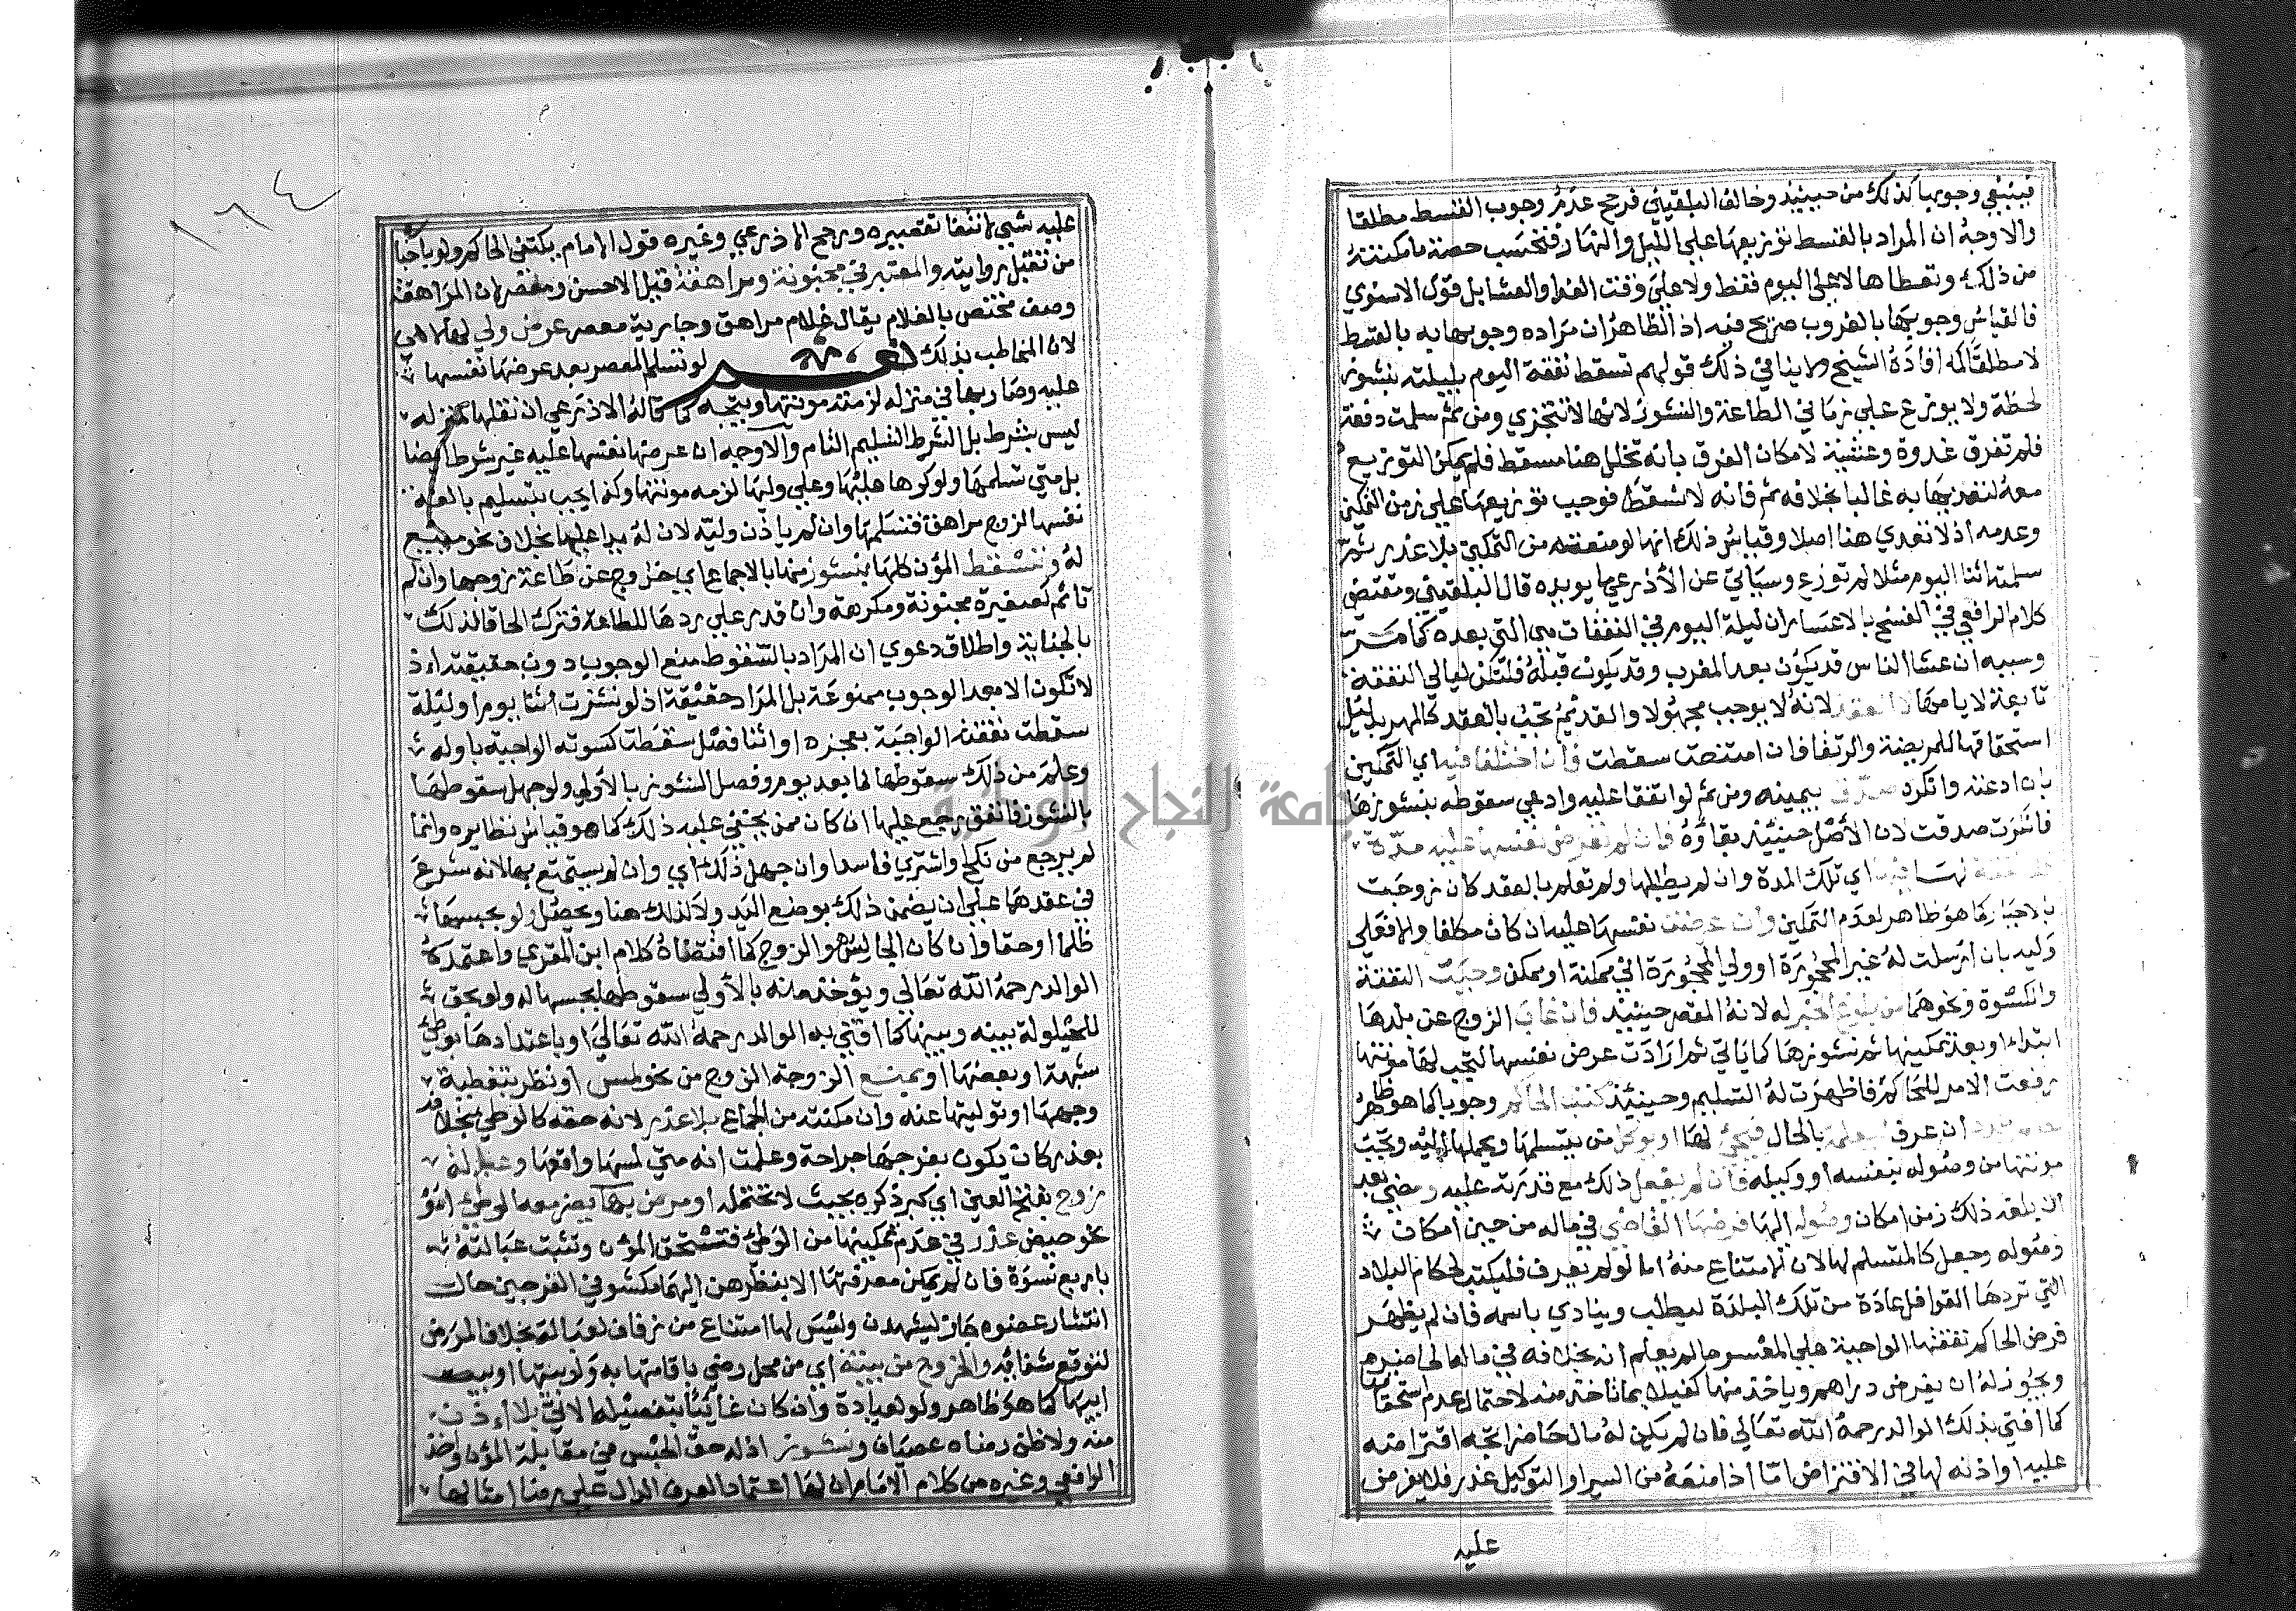 فينبغي وجوبها كذلك من حينئذ وخالف البلقيني فرجح عدم وجوب القسط مطلقا
والاوجه ان المراد بالقسط توزيعها على الليل والنهار فتحسب حصة ما مكنته
من ذلك وتعطاها لا على اليوم فقط ولا على وقت الغدا والعشا بل قول الاسنوي
فالقياس وجوبها بالغروب صريح فيه اذ الظاهر ان مراده وجوبها به بالقسط
لا مطلقا كما افاده الشيخ ولا ينافي ذلك قولهم تسقط نفقة اليوم بليلته بنشوز
لحظة ولا يوزع على زماني الطاعة والنشوز لانها لا تتجزي ومن ثم سلمت دفعة
فلم تفرق غدوة وعشية لامكان الفرق بانه تخلل هنا مسقط فلم يمكن التوزيع
معه لتعديها به غالبا بخلافه ثم فانه لا مسقط فوجب توزيعها على زمن التمكين
وعدمه اذ لا تعدي هنا اصلا وقياس ذلك انها لو منعته من التمكين بلا عذر ثم
سلمته اثنا اليوم مثلا لم توزع وسياتي عن الاذرعي ما يويده قال البلقيني ومقتضى
كلام الرافعي في الفسخ بالاعسار ان ليلة اليوم في النفقات هي التي بعده كما مر
وسببه ان عشا الناس قد يكون بعد المغرب وقد يكون قبله فلتكن ليالي النفقة
تابعة لايامها لا العقد لانه لا يوجب مجهولا والعقد ثم تجب بالعقد كالمهر بدليل
استحقاقها للمريضة والرتقا فان امتنعت سقطت فان اختلفا فيه اي التمكين
بان ادعته وانكره صدق بيمينه ومن ثم لو اتفقا عليه وادعي سقوطه بنشوزها
فانكرت صدقت لان الاصل حينئذ بقاؤه فان لم تعرض نفسها عليه مدة
فلا نفقة لها فيها اي تلك المدة وان لم يطالبها ولم تعلم بالعقد كان زوجت
بالاجبار كما هو ظاهر لعدم التمكين وان عرضت نفسها عليه ان كان مكلفا والا فعلى
وليه بان ارسلت له غير المحجورة او ولي المحجورة اني ممكنة او ممكن وجبت النفقة
والكسوة ونحوهما من بلوغ الخبر له لانه المقصر حينئذ فان غاب الزوج عن بلدها
ابتداء او بعد تمكينها ثم نشوزها كما ياتي ثم ارادت عرض نفسها لتجب لها مونتها
رفعت الامر للحاكم فاظهرت له التسليم وحينئذ كتب الحاكم وجوبا كما هو ظاهر
بلده ان عرف ليعلمه بالحال فيجيئ لها او يوكل من يتسلمها ويحملها اليه وتجب
مونتها من وصوله بنفسه او وكيله فان لم يفعل ذلك مع قدرته عليه ومضى بعد
ان بلغه ذلك زمن امكان وصوله اليها فرضها القاضي في ماله من حين امكان
وصوله وجعل كالمتسلم لها لان الامتناع منه اما لو لم يعرف فليكتب لحكام البلاد
التي تردها القوافل عادة من تلك البلدة ليطلب وينادي باسمه فان لم يظهر
فرض الحاكم نفقتها الواجبة على المعسر ما لم يعلم انه بخلافه في ماله الحاضر
ويجوز له ان يفرض دراهم وياخذ منها كفيلا بما تاخذ منه لاحتمال عدم استحقاقها
كما افتي بذلك الوالد رحمه الله تعالى فان لم يكن له مال حاضر اتجه اقتراضه
عليه او اذنه لها في الاقتراض اما اذا منعه من السير او التوكيل عذر فلا يفرض
عليه
١٦٤
عليه شي لانتفا تقصيره ورجح الاذرعي وغيره قول الامام يكتفي الحاكم ولو باخبا
من تقبل روايته والمعتبر في مجنونة ومراهقة قيل الاحسن ومعصر لان المراهقة
وصف مختص بالغلام يقال غلام مراهق وجارية معصر عرض ولي لها لا هي
لان المخاطب بذلك نعم لو تسلم المعصر بعد عرضها نفسها
عليه وصار بها في منزله لزمته مونتها ويتجه كما قاله الاذرعي ان نقلها لمنزله
ليس بشرط بل الشرط التسليم التام والاوجه ان عرضها نفسها عليه غير شرط ايضا
بل متي تسلمها ولو كرها عليها وعلي وليها لزمه مونتها وكذا يجب بتسليم بالغة
نفسها لزوج مراهق فتسلمها وان لم ياذن وليه لان له يدا عليها بخلاف نحو مبيع
له وتسقط المؤن كلها بنشوز منها بالاجماع اي خروج عن طاعة زوجها وان لم
تاثم كصغيرة مجنونة ومكرهة وان قدر على ردها للطاعة فترك الحاقا لذلك
بالجناية واطلاق دعوي ان المراد بالسقوط منع الوجوب دون حقيقته اذ
لا تكون الا بعد الوجوب ممنوعة بل المراد حقيقة اذ لو نشزت اثنا يوم او ليلة
سقطت نفقته الواجبة بفجره او اثنا فصل سقطت كسوته الواجبة باوله
وعلم من ذلك سقوطها لما بعد يوم وفصل النشوز بالاولي ولو جهل سقوطها
بالنشوز فانفق رجع عليها ان كان ممن يخفي عليه ذلك كما هو قياس نظايره وانما
لم يرجع من نكح او اشتري فاسدا وان جهل ذلك اي وان لم يستمتع بها لانه شرع
في عقدهما على ان يضمن ذلك بوضع اليد ولا كذلك هنا ويحصل ولو بحبسها
ظلما او حقا وان كان الحابس هو الزوج كما اقتضاه كلام ابن المقري واعتمده
الوالد رحمه الله تعالى ويؤخذ منه بالاولي سقوطها بحبسها له ولو بحق
للحيلولة بينه وبينها كما افتي به الوالد رحمه الله تعالى او باعتدادها بوطئ
شبهة او بعضها او بمنع الزوجة الزوج من نحو لمس او نظر بتغطية
وجهها او توليتها عنه وان مكنته من الجماع بلا عذر لانه حقه كالوطي بخلافه
بعذر كان يكون بفرجها جراحة وعلمت انه متي لمسها واقعها وعبالة
زوج بفتح العين اي كبر ذكره بحيث لا تحتمله او مرض بها يضر معه الوطئ او
نحو حيض عذر في عدم تمكينها من الوطئ فتستحق المؤن وتثبت عبالته
باربع نسوة فان لم يمكن معرفتها الا بنظرهن اليهما مكشوفي الفرجين حال
انتشار عضوه جاز ليشهدن وليس لها امتناع من زفاف لعبالة بخلاف المرض
لتوقع شفائه والخروج من بيته اي من محل رضي باقامتها به ولو بيتها او بيت
ابيها كما هو ظاهر ولو لعيادة وان كان غائبا بتفصيله الاتي بلا اذن
منه ولا ظن رضاه عصيان ونشوز اذ له حق الحبس في مقابلة المؤن واخذ
الرافعي وغيره من كلام الامام ان لها اعتماد العرف الدال على رضا امثاله